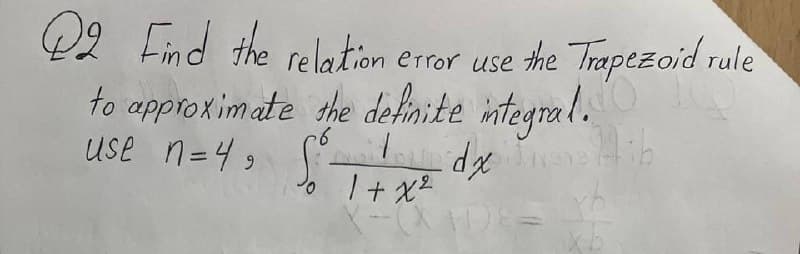 Q2 Find the relation error use the Trapezoid rule
to approximate the definite integral.
use n=4, ∫₀⁶ 1/(1+x²) dx